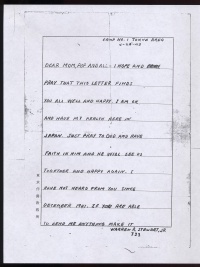 CAMP NO. 1 TOKYO AREA
DEAR MOM, POP AND ALL: I HOPE AND
PRAY THAT THIS LETTER FINDS
YOU ALL WELL AND HAPPY. I AM OK
AND HAVE MY HEALTH HERE IN
JAPAN. JUST PRAY TO GOD AND HAVE
FAITH IN HIM AND HE WILL SEE US
TOGETHER AND HAPPY AGAIN. I
HAVE NOT HEARD FROM YOU SINCE
DECEMBER 1941. IF YOU ARE ABLE
TO SEND ME ANYTHING MAKE IT
WARREN R. STEWART, JR.